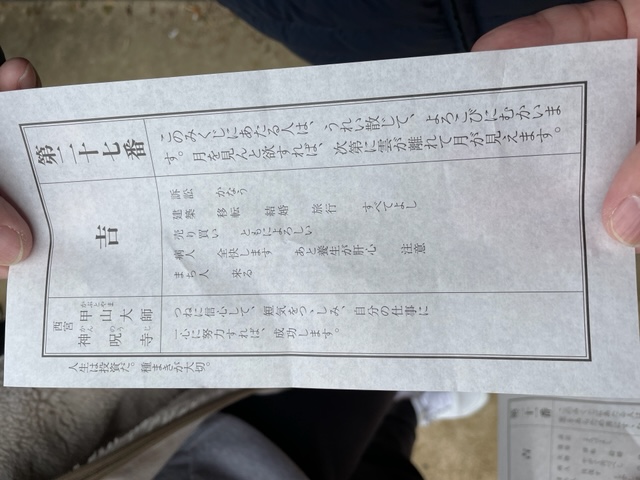 第二十七番
このみくじにあたる人は、うれい散じて、よろこびにむかいま
す。月を見んと欲すれば、次第に雲が離れて月が見えます。
吉
訴訟 かなう
建築 移転 結婚 旅行 すべてよし
売り買い ともによろしい
病人 全快します あと養生が肝心 注意
まち人 来る
西宮 甲山大師
かぶとやま
神呪寺
かんのうじ
つねに信心して、短気をつゝしみ、自分の仕事に
一心に努力すれば、成功します。
人生は投資だ。種まきが大切。
十番
吉